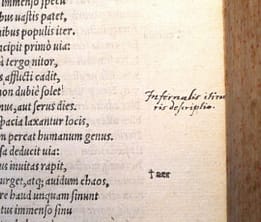 immenso specu
bus uastis patet,
nibus populis iter.
ncipit primò uia:
à tergo nitor,
s afflicti cadit,
non dubiè solet
nus, aut serus dies.
spacia laxantur locis,
m pereat humanum genus.
sa deducit uia:
us inuitas rapit,
urget, atq; auidum chaos,
re haud unquam sinunt
tus immenso sinu
Infernalis itine
ris descriptio.
† aer